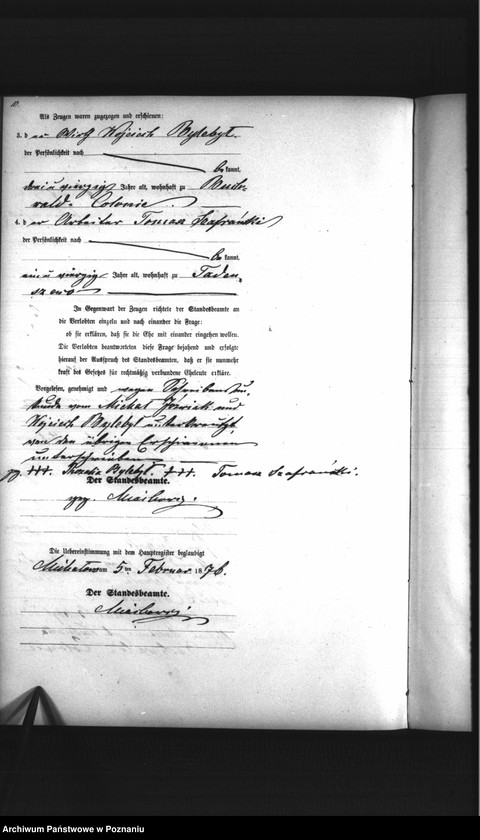 Als Zeugen waren zugezogen und erschienen:
3. d er Wirth Wojciech Bylebyl
der Persönlichkeit nach
be kannt,
drei u vierzig Jahre alt, wohnhaft zu Buch-
walde Colonie.
4. d er Arbeiter Tomasz Szafrański
der Persönlichkeit nach
be kannt,
ein u vierzig Jahre alt, wohnhaft zu Taden
In Gegenwart der Zeugen richtete der Standesbeamte an
die Verlobten einzeln und nach einander die Frage:
ob sie erklären, daß sie die Ehe mit einander eingehen wollen.
Die Verlobten beantworteten diese Frage bejahend und erfolgte
hierauf der Ausspruch des Standesbeamten, daß er sie nunmehr
kraft des Gesetzes für rechtmäßig verbundene Eheleute erkläre.
Vorgelesen, genehmigt und wegen Schreibensun-
kunde vom Michal und
Wojciech Bylebyl unterkreuzt
von den übrigen Erschienenen
unterschrieben
gez. +++. Bylebyl. +++. Tomasz Szafrański.
Der Standesbeamte.
gez.
Die Uebereinstimmung mit dem Hauptregister beglaubigt
am 5 ten Februar 1876.
Der Standesbeamte.
Archiwum Państwowe w Poznaniu